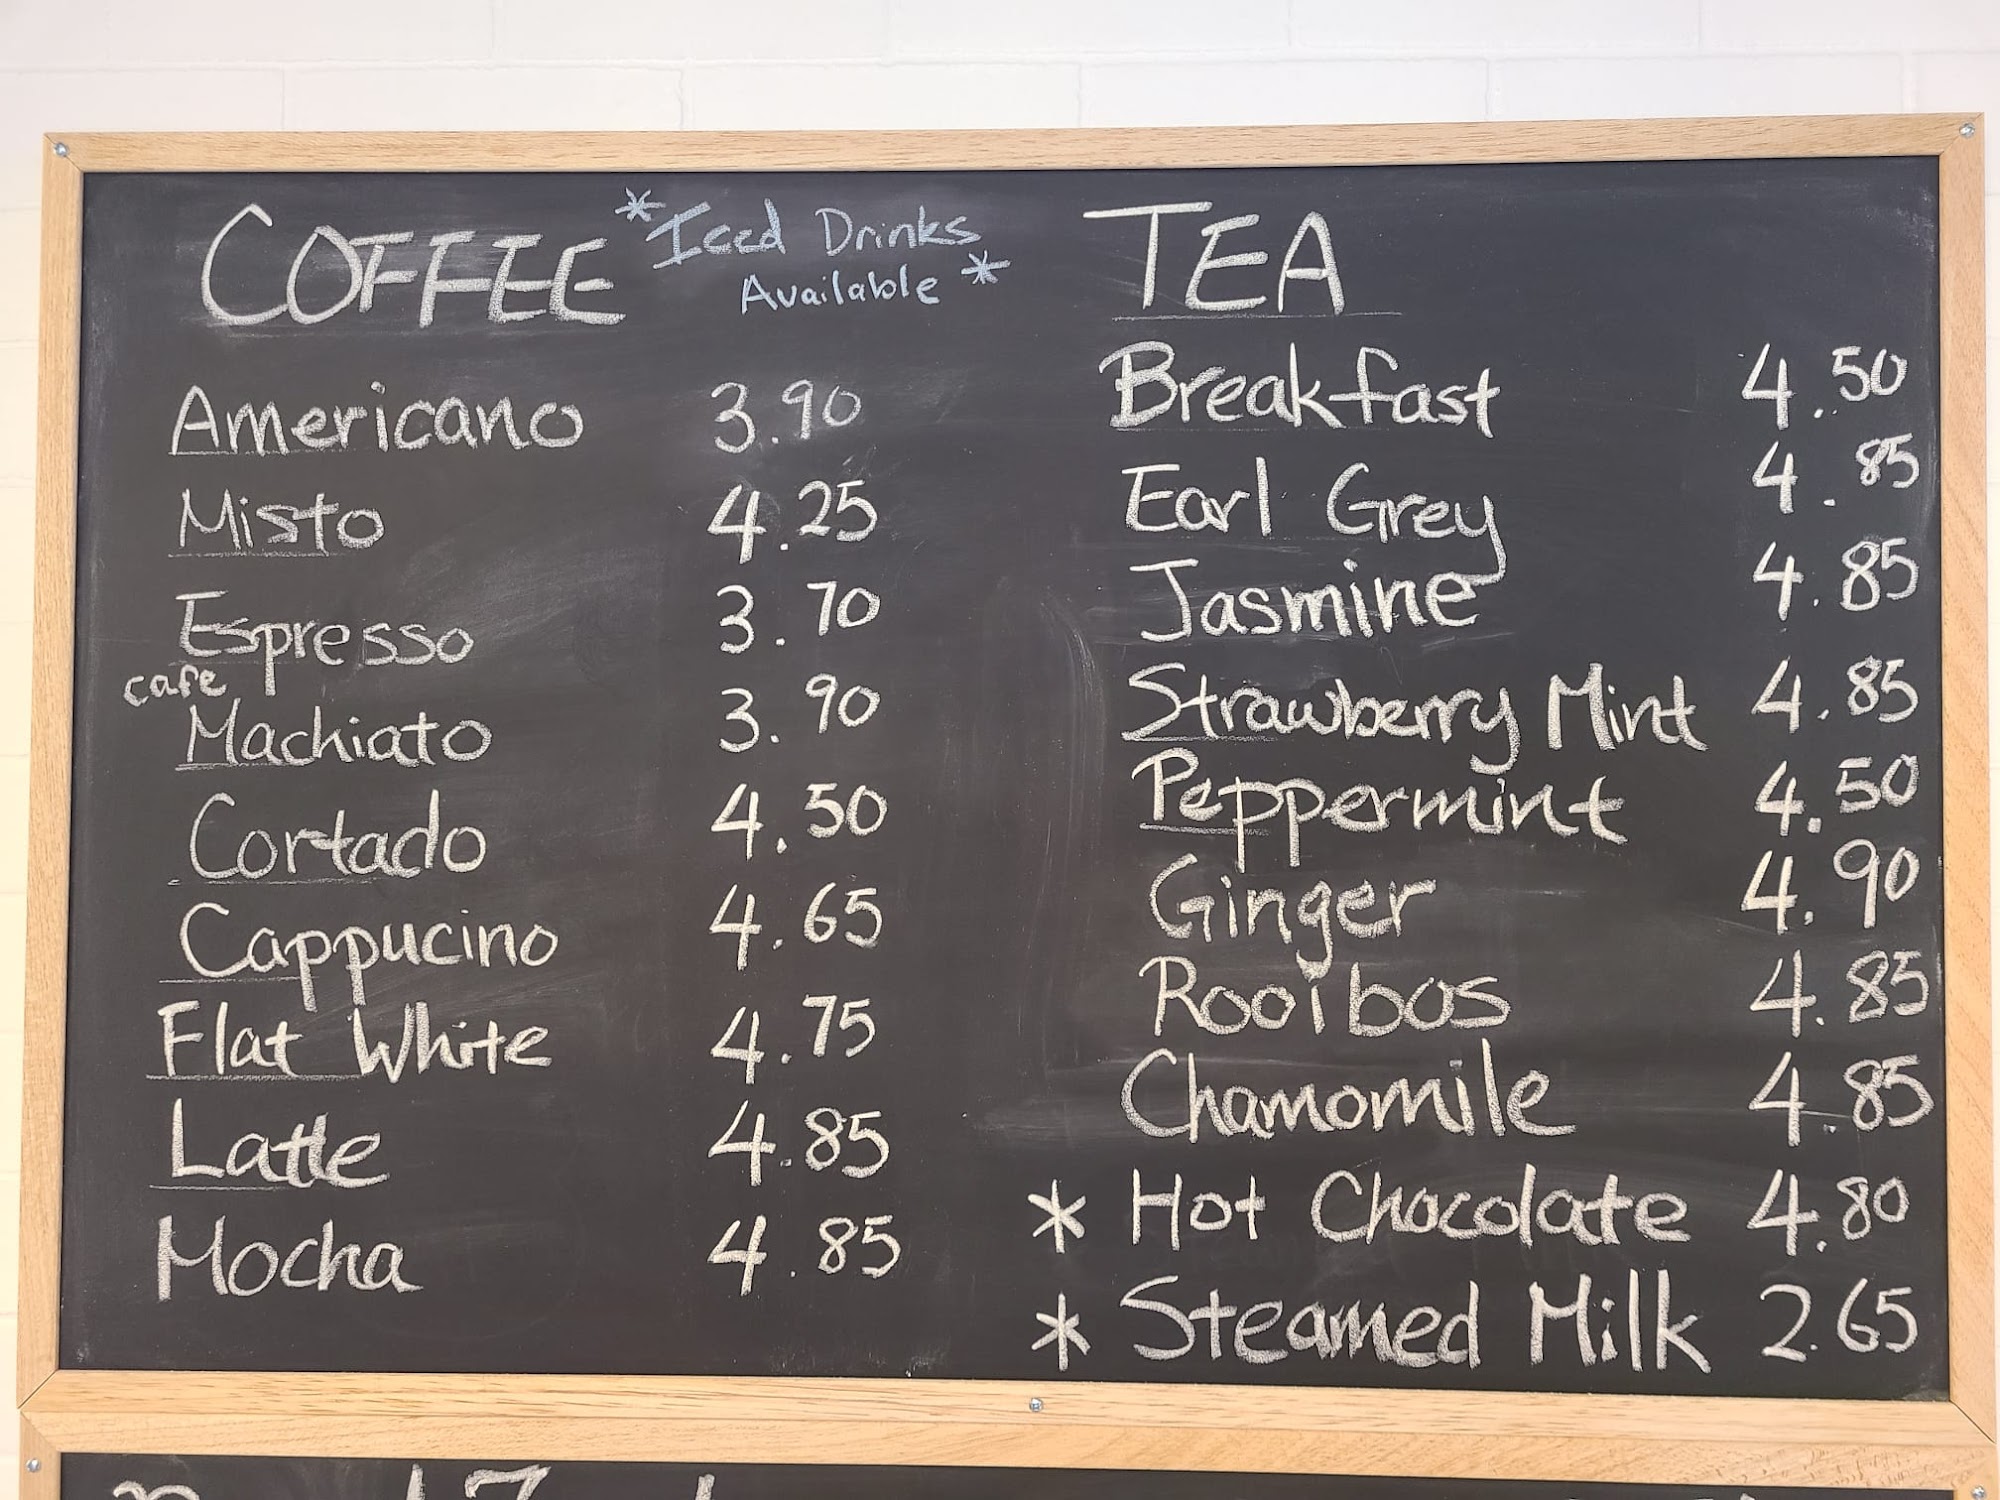 COFFEE
*Iced Drinks
Available*
Americano 3.90
Misto 4.25
Espresso 3.70
cafe
Machiato 3.90
Cortado 4.50
Cappucino 4.65
Flat White 4.75
Latte 4.85
Mocha 4.85
TEA
Breakfast 4.50
Earl Grey 4.85
Jasmine 4.85
Strawberry Mint 4.85
Peppermint 4.50
Ginger 4.90
Rooibos 4.85
Chamomile 4.85
* Hot Chocolate 4.80
* Steamed Milk 2.65